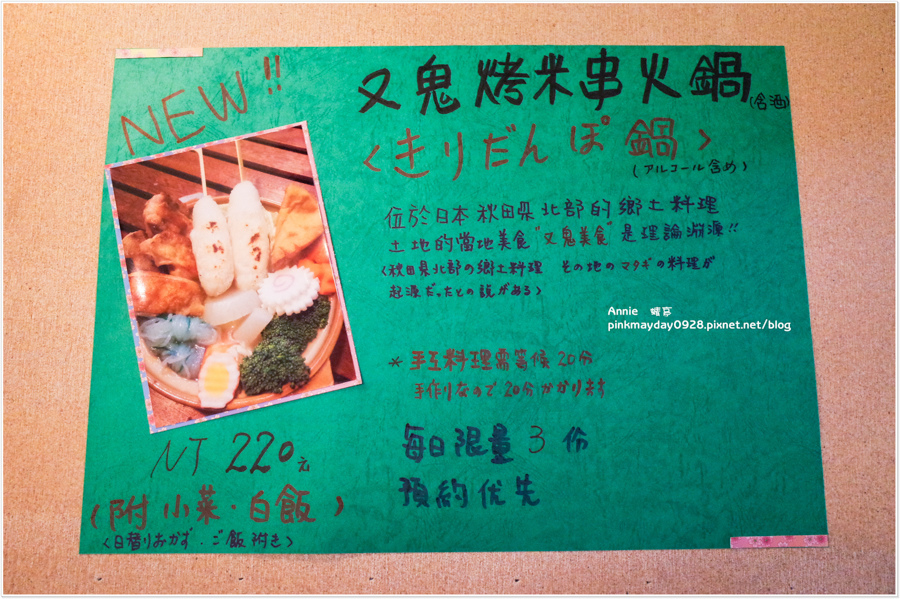 NEW!!
又鬼烤米串火鍋(含酒)
<きりだんぽ鍋>
(アルコール含め)
位於日本秋田県北部的鄉土料理
土地的當地美食"又鬼美食"是理論淵源!!
<秋田県北部の郷土料理 その地のマタギの料理が
起源だったとの説がある>
Annie 曖享
pinkmayday0928.pixnet.net/blog
*手工料理需等候20分
手作りなので20分かかります
每日限量3份
預約优先
NT 220元
(附小菜·白飯)
<日替りおかず·ご飯附き>